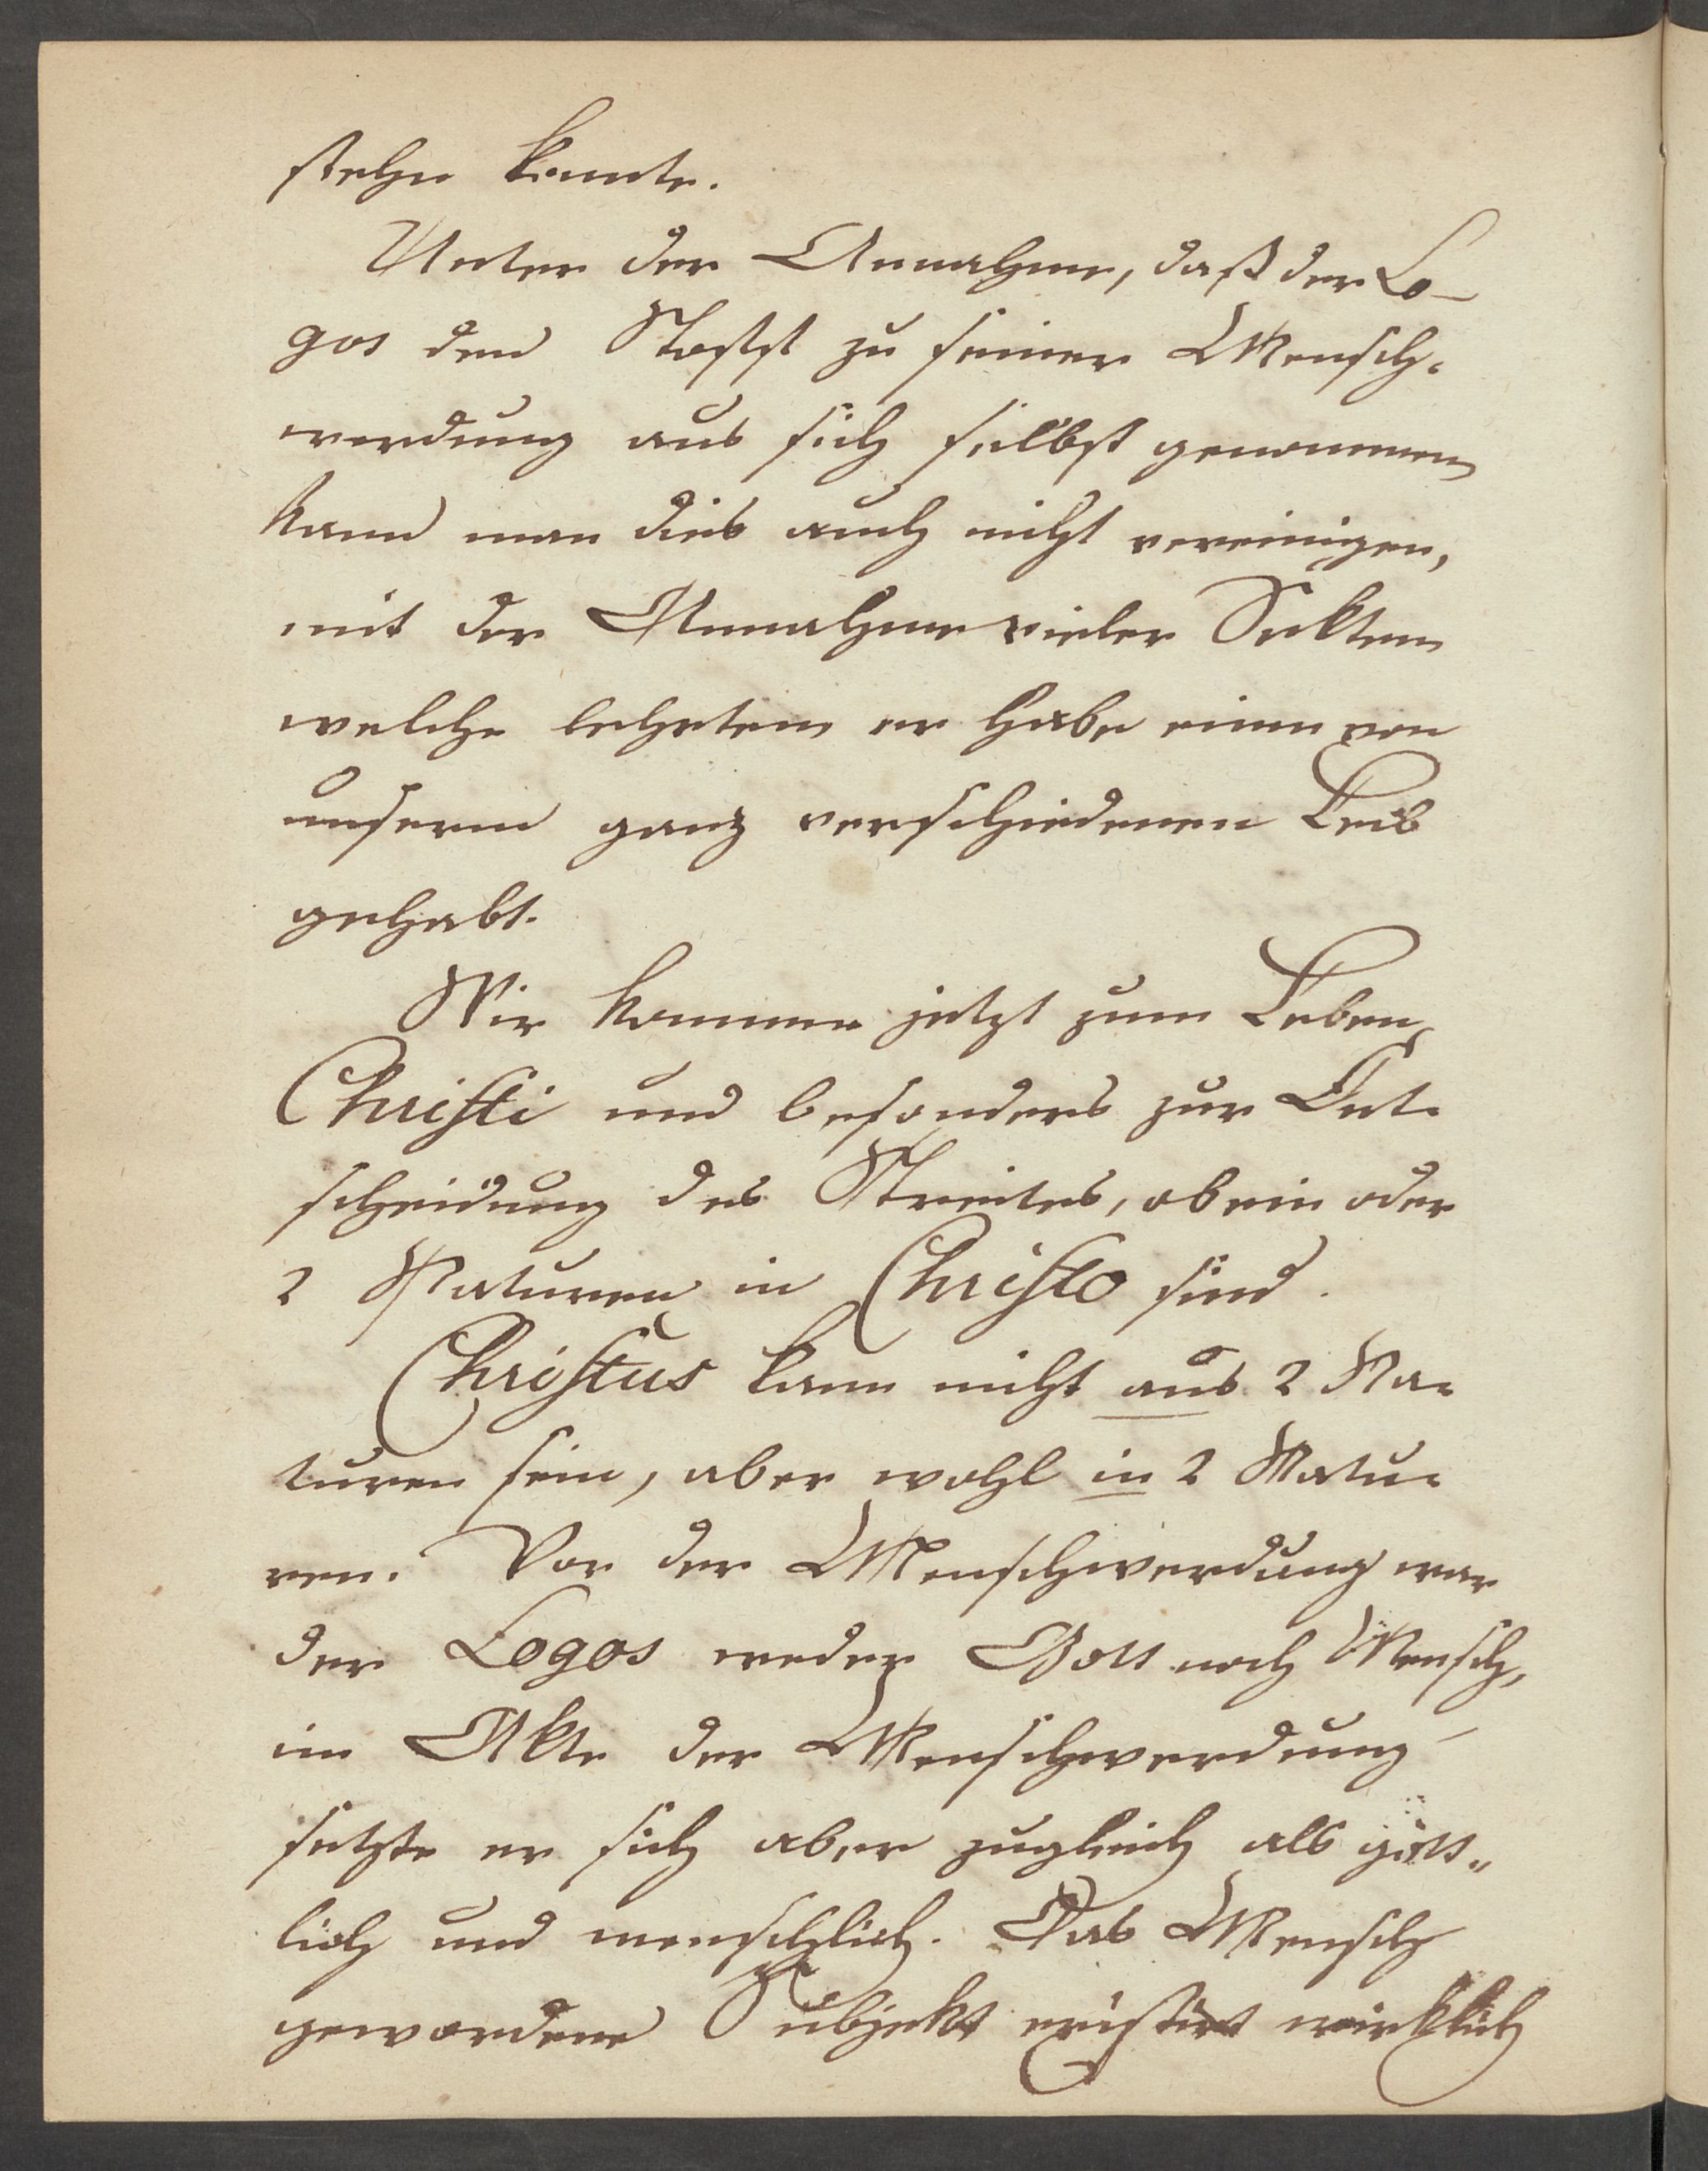 stehn konnte.
Unter der Annahme, daß der Lo-
gos den Stoff zu seiner Mensch-
werdung aus sich selbst genommen
kann man dies auch nicht vereinigen,
mit der Annahme vieler Sekten
welche lehrten er habe einen von
unserm ganz verschiedenen Leib
gehabt.
Wir kommen jetzt zum Leben
Christi und besonders zur Ent-
scheidung des Streites, ob ein oder
2 Naturen in Christo sind.
Christus kann nicht aus 2 Na-
turen sein, aber wohl in 2 Natu-
ren. Vor der Menschwerdung war
der Logos weder Gott noch Mensch,
im Akte der Menschwerdung
setzte er sich aber zugleich als gött-
lich und menschlich. Das Mensch
gewordene Subjekt existirt wirklich